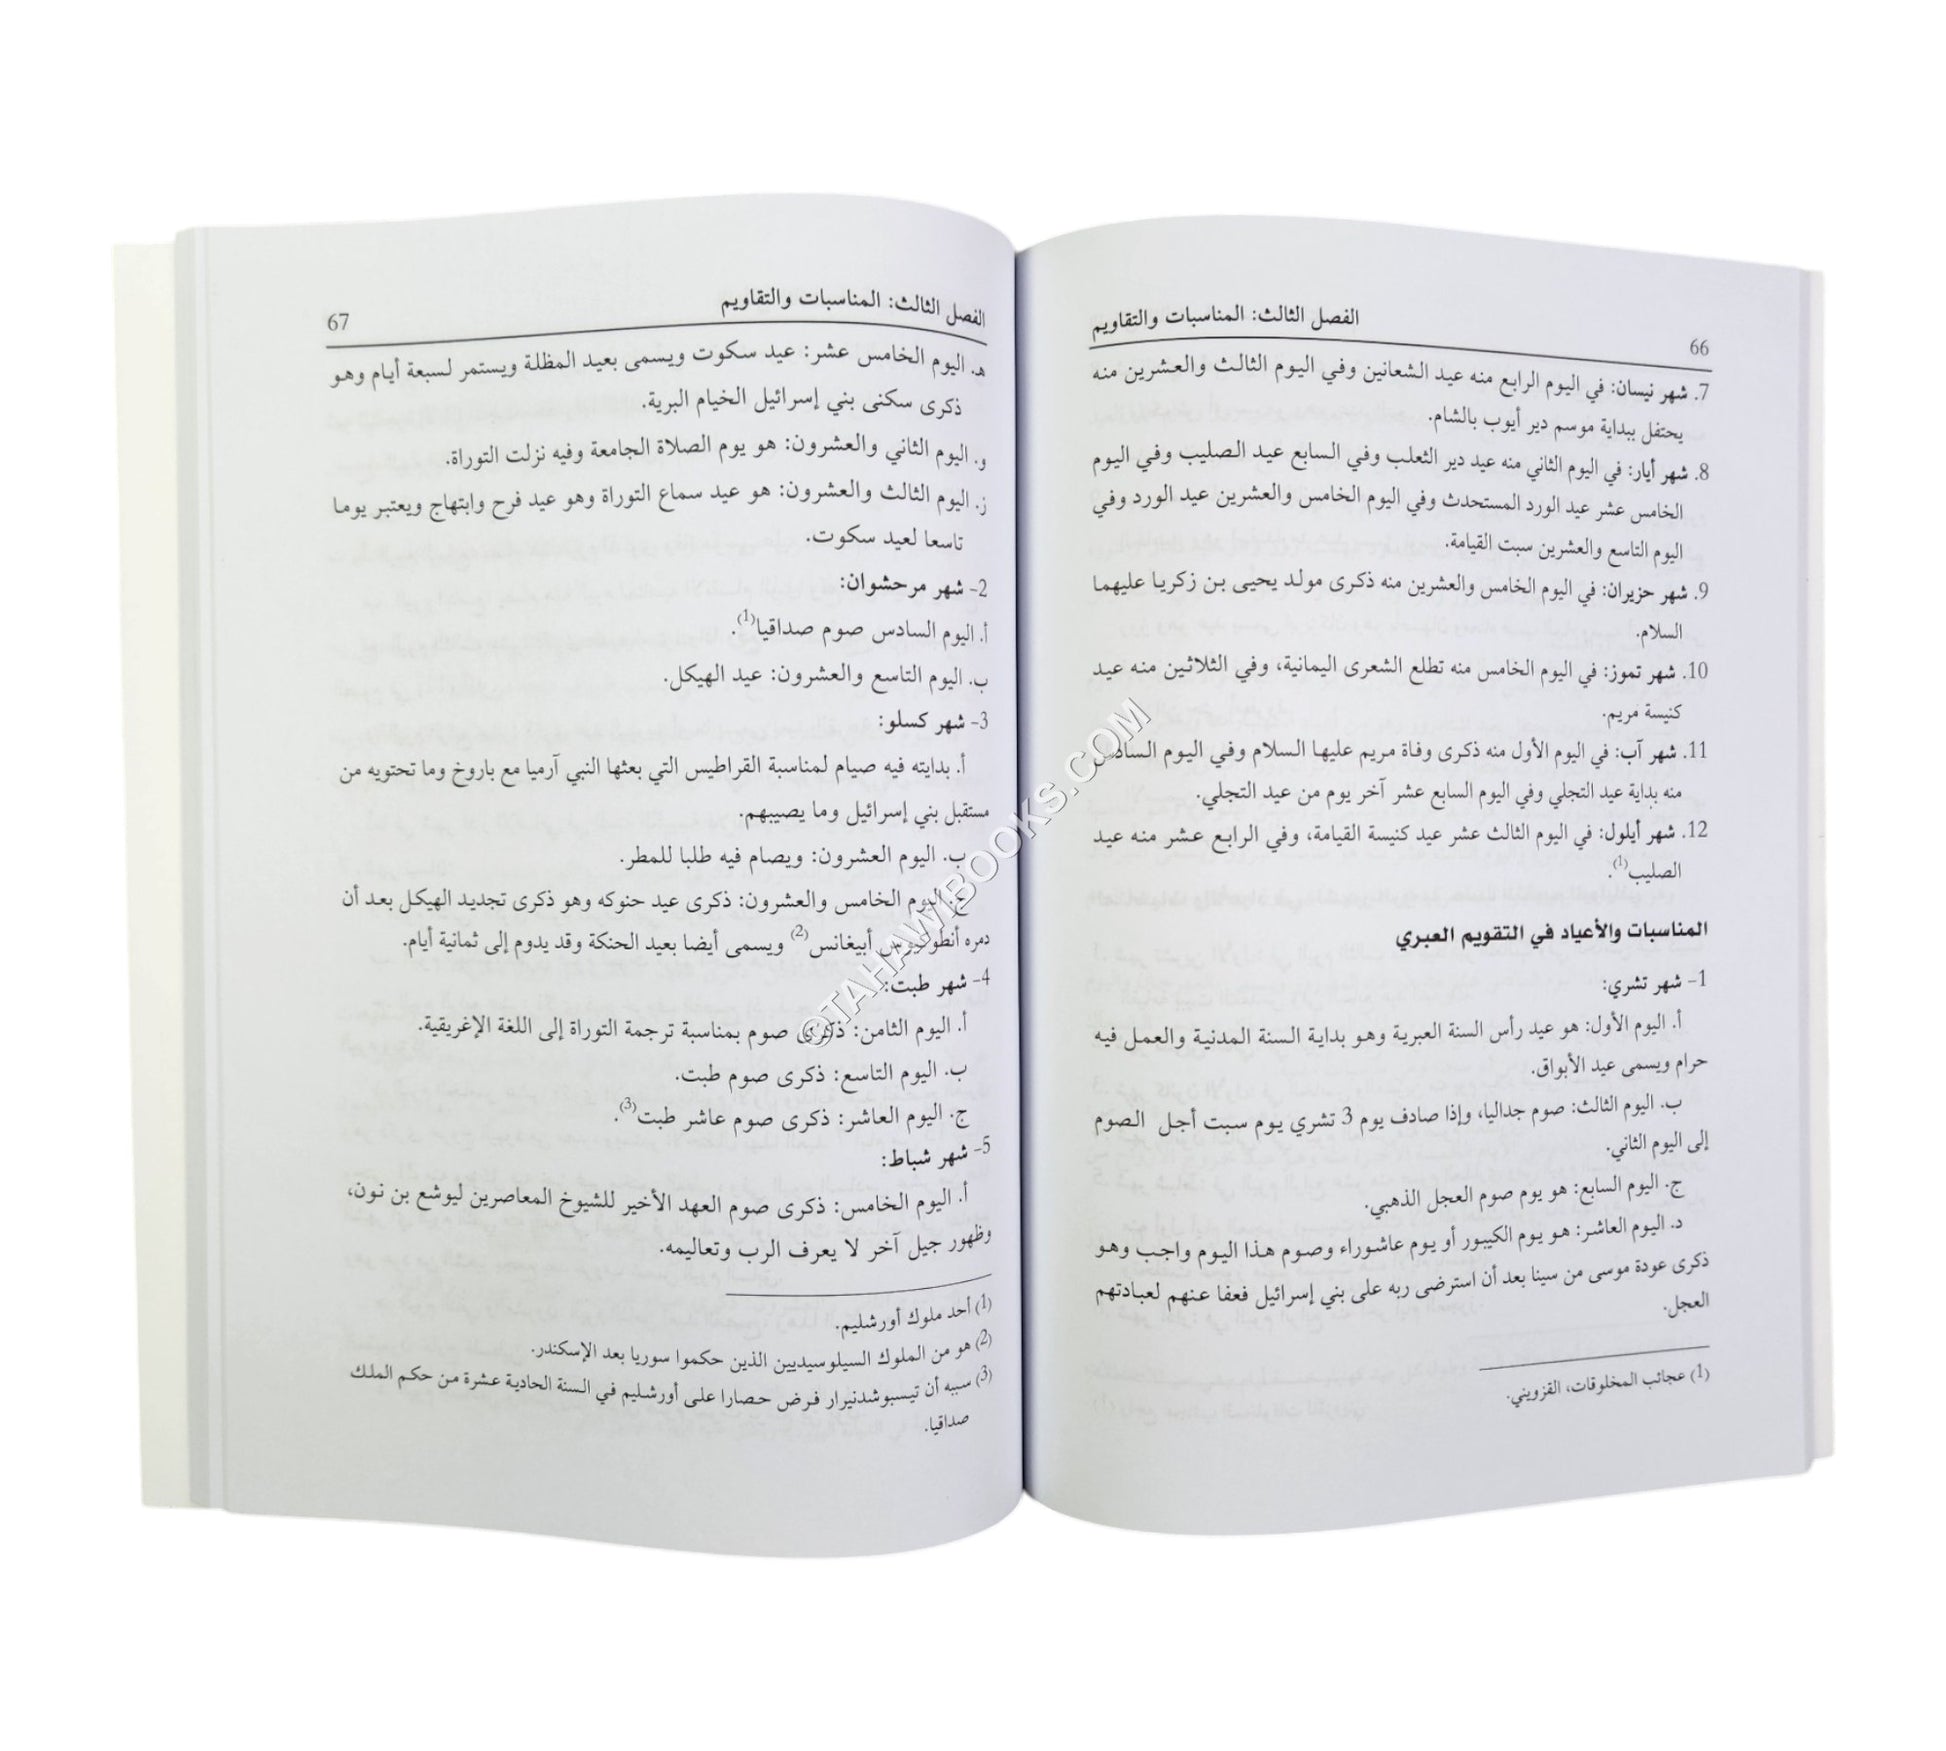 الفصل الثالث: المناسبات والتقاويم
66
7. شهر نيسان: في اليوم الرابع منه عيد الشعانين وفي اليوم الثالث والعشرين منه
يحتفل ببداية موسم دير أيوب بالشام.
8. شهر أيار: في اليوم الثاني منه عيد دير الثعلب وفي السابع عيد الصليب وفي اليوم
الخامس عشر عيد الورد المستحدث وفي اليوم الخامس والعشرين عيد الورد وفي
اليوم التاسع والعشرين سبت القيامة.
9. شهر حزيران: في اليوم الخامس والعشرين منه ذكرى مولد يحيى بن زكريا عليهما
السلام.
10. شهر تموز: في اليوم الخامس منه تطلع الشعرى اليمانية، وفي الثلاثين منه عيد
كنيسة مريم.
11. شهر آب: في اليوم الأول منه ذكرى وفاة مريم عليها السلام وفي اليوم السادس
منه بداية عيد التجلي وفي اليوم السابع عشر آخر يوم من عيد التجلي.
12. شهر أيلول: في اليوم الثالث عشر عيد كنيسة القيامة، وفي الرابع عشر منه عيد
الصليب(1).
المناسبات والأعياد في التقويم العبري
1- شهر تشري:
أ. اليوم الأول: هو عيد رأس السنة العبرية وهو بداية السنة المدنية والعمل فيه
حرام ويسمى عيد الأبواق.
ب. اليوم الثالث: صوم جداليا، وإذا صادف يوم 3 تشري يوم سبت أجل الصوم
إلى اليوم الثاني.
ج. اليوم السابع: هو يوم صوم العجل الذهبي.
د. اليوم العاشر: هو يوم الكيبور أو يوم عاشوراء وصوم هذا اليوم واجب وهو
ذكرى عودة موسى من سينا بعد أن استرضى ربه على بني إسرائيل فعفا عنهم لعبادتهم
العجل.
(1) عجائب المخلوقات، القزويني.
الفصل الثالث: المناسبات والتقاويم
67
هـ. اليوم الخامس عشر: عيد سكوت ويسمى بعيد المظلة ويستمر لسبعة أيام وهو
ذكرى سكنى بني إسرائيل الخيام البرية.
و. اليوم الثاني والعشرون: هو يوم الصلاة الجامعة وفيه نزلت التوراة.
ز. اليوم الثالث والعشرون: هو عيد سماع التوراة وهو عيد فرح وابتهاج ويعتبر يوما
تاسعا لعيد سكوت.
2- شهر مرحشوان:
أ. اليوم السادس صوم صداقيا(1).
ب. اليوم التاسع والعشرون: عيد الهيكل.
3- شهر كسلو:
أ. بدايته فيه صيام لمناسبة القراطيس التي بعثها النبي آرميا مع باروخ وما تحتويه من
مستقبل بني إسرائيل وما يصيبهم.
ب. اليوم العشرون: ويصام فيه طلبا للمطر.
ج. اليوم الخامس والعشرون: ذكرى عيد حنوكه وهو ذكرى تجديد الهيكل بعد أن
دمره أنطوكيوس أبيغانس(2) ويسمى أيضا بعيد الحنكة وقد يدوم إلى ثمانية أيام.
4- شهر طبت:
أ. اليوم الثامن: ذكرى صوم بمناسبة ترجمة التوراة إلى اللغة الإغريقية.
ب. اليوم التاسع: ذكرى صوم طبت.
ج. اليوم العاشر: ذكرى صوم عاشر طبت(3).
5- شهر شباط:
أ. اليوم الخامس: ذكرى صوم العهد الأخير للشيوخ المعاصرين ليوشع بن نون،
وظهور جيل آخر لا يعرف الرب وتعاليمه.
(1) أحد ملوك أورشليم.
(2) هو من الملوك السيلوسيديين الذين حكموا سوريا بعد الإسكندر.
(3) سببه أن تيسبوشدنيرار فرض حصارا على أورشليم في السنة الحادية عشرة من حكم الملك
صداقيا.
©TAHAWIBOOKS.COM